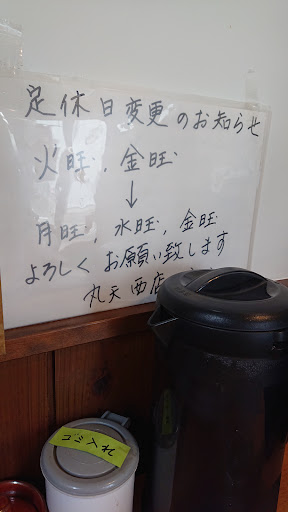 定休日変更のお知らせ
火旺、金旺
↓
月旺、水旺、金旺
よろしくお願い致します
丸天西店
ゴミ入れ